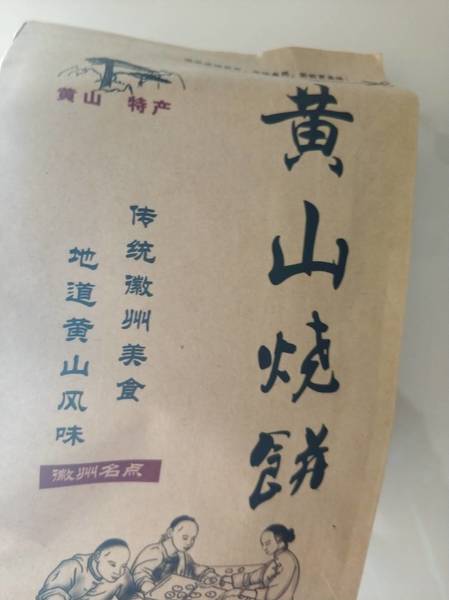 黄山 特产
黄山烧饼
传统徽州美食
地道黄山风味
徽州名点